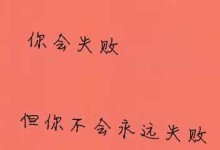 你会失败
但你不会永远失败